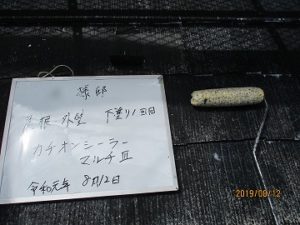 様邸
屋根 外壁 下塗り1回目
カチオンシーラー
マルチⅢ
令和元年 8月12日
2019/08/12